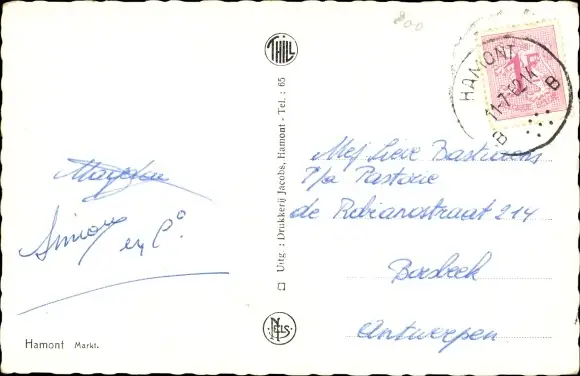 THILL
HAMONT
11-7-62 14
B B
1F
Simone en Co.
Hamont Markt.
Uitg. : Drukkerij Jacobs, Hamont - Tel. : 65
NELS
Mej Lieve Bastiaens
P/a Pastorie
de Robianostraat 214
Borsbeek
Antwerpen